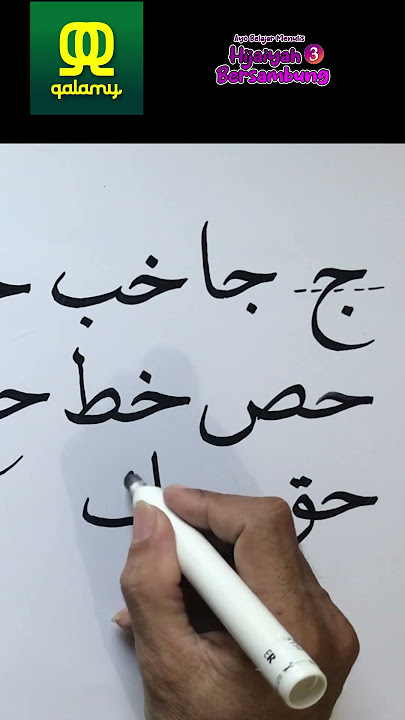 qalamy
Ayo Belajar Menulis
Hijaiyah 3
Bersambung
ج جا خب
حص خط
حق